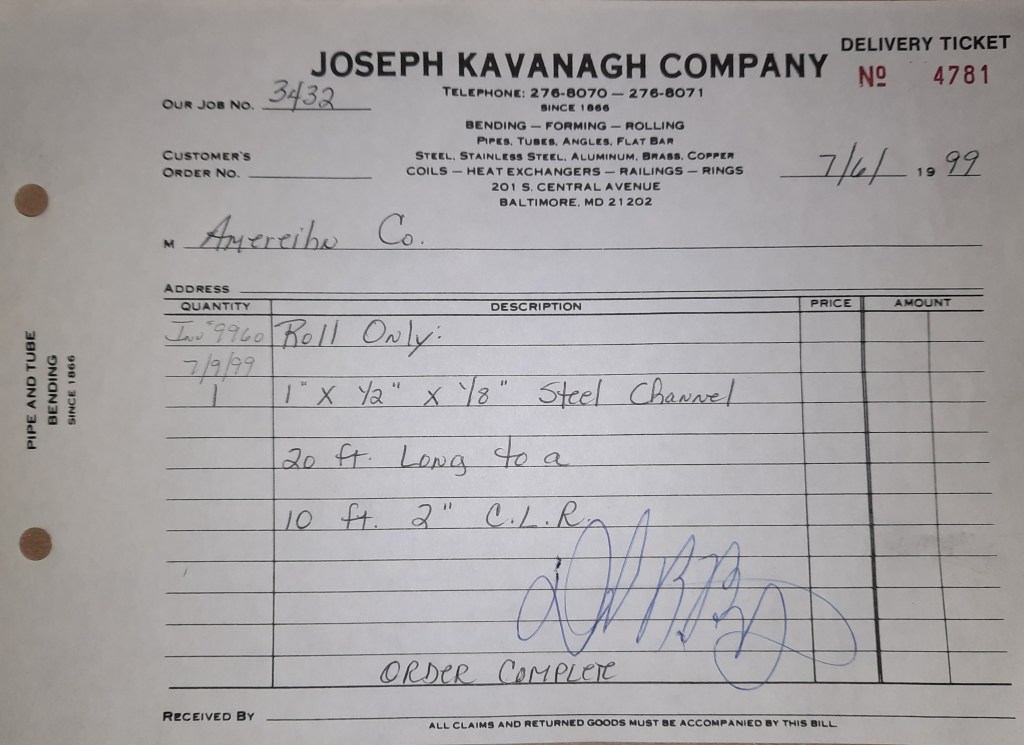 DELIVERY TICKET
JOSEPH KAVANAGH COMPANY
Nº 4781
OUR JOB NO. 3432
TELEPHONE: 276-8070 — 276-8071
SINCE 1866
BENDING — FORMING — ROLLING
PIPES, TUBES, ANGLES, FLAT BAR
CUSTOMER'S
ORDER NO.
STEEL, STAINLESS STEEL, ALUMINUM, BRASS, COPPER
COILS — HEAT EXCHANGERS — RAILINGS — RINGS
7/6/ 19 99
201 S. CENTRAL AVENUE
BALTIMORE, MD 21202
M Amereihn Co.
ADDRESS
QUANTITY DESCRIPTION PRICE AMOUNT
Inv # 9960 Roll Only:
7/9/99
1 1" X 1/2" X 1/8" Steel Channel
20 ft. Long to a
10 ft. 2" C.L.R.
ORDER COMPLETE
RECEIVED BY
ALL CLAIMS AND RETURNED GOODS MUST BE ACCOMPANIED BY THIS BILL
PIPE AND TUBE
BENDING
SINCE 1866